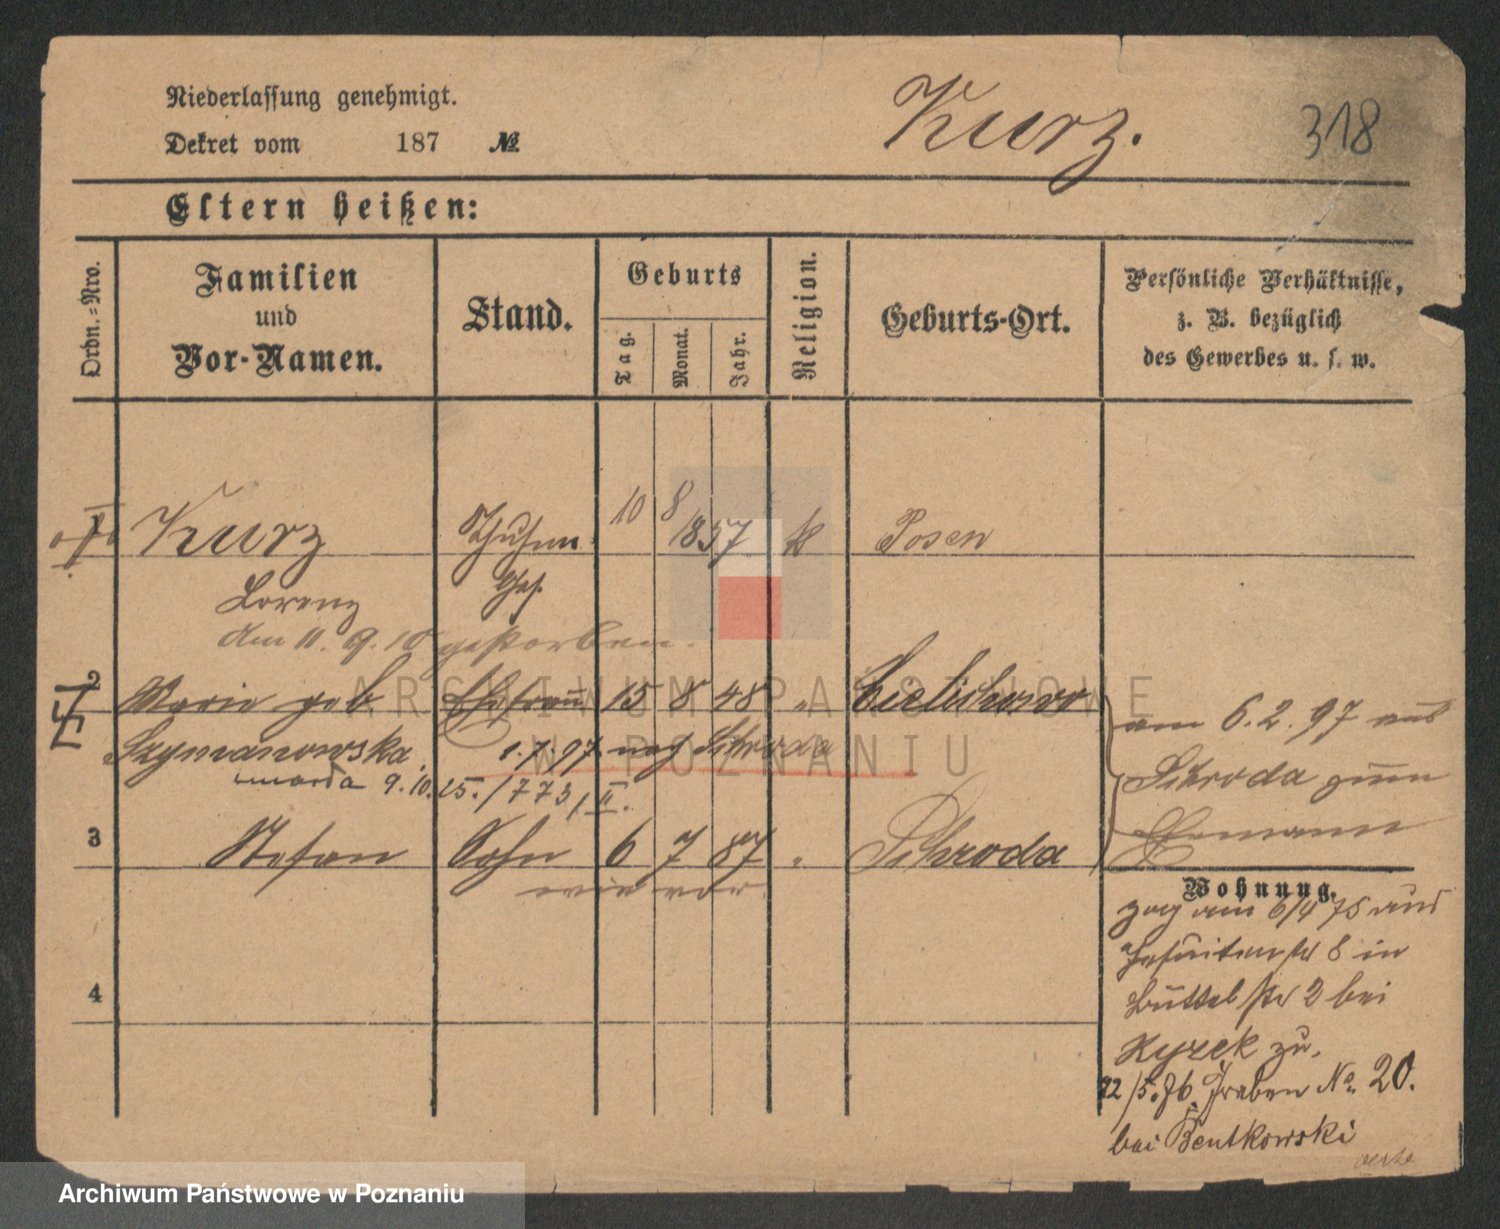 Niederlassung genehmigt.
Dekret vom 187 №
Kurz.
318
Eltern heißen:
Ordn.-Nro.
Familien
und
Vor-Namen.
Stand.
Geburts
Tag.
Monat.
Jahr.
Religion.
Geburts-Ort.
Persönliche Verhältnisse,
z. B. bezüglich
des Gewerbes u. s. w.
Kurz 10 8 1857 k Posen
Lorenz Ges.
Am 11. 9. 18 gestorben.
2 Marie geb Ehefrau 15 8 48 "
Szymanowska 1.7.97 nach Schroda
umarła 9.10.25./773/II.
3 Stefan Sohn 6 7 87 " Schroda
wie vor.
am 6.2.97 aus
Schroda zum
Ehemann
4
Wohnung.
zog am 6/4 75 aus
Jesuitenstr 8 in
Büttelstr 2 bei
Kyzek zu.
12/5.76. Graben No. 20.
bei Bentkowski
ARCHIWUM PAŃSTWOWE
W POZNANIU
Archiwum Państwowe w Poznaniu